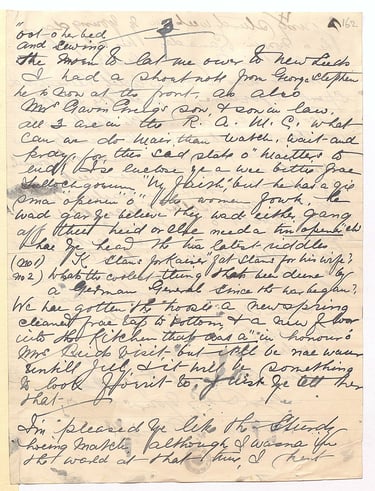 162
3
oot o he bed
and sewing.
the morn to cat me ower to New Leeds
I had a short note from George Stephen
he is now at the front. as also
Mrs Gavin Greigs son & son in law.
all 3 are in the R. A. M. C. what
can we do mair than watch. wait and
pray for this sad state o' matters to
end.
"My Jaish" but he has a gie
sma opeenin o' the women fowk. he
wad gar ye believe they wad either gang
aff their heid or else need a tin openin
hae ye heard the twa latest riddles
(no 1) K stans for Kaiser fat stans for his wife?
no 2) Whats the coolest thing thats been deene by
a German General since the war began?
We hae gotten the hoose a new spring
cleaned frae tap to bottom, & a new floor
into the kitchen thats a' in honour o'
Mrs visit but I'll be nae waur
until July, & it will be something
to look forrit to, I wish ye tell her
that.
I'm pleased ye like the Sturdy
hoeing match although I wasna in
the world at that time, I kent